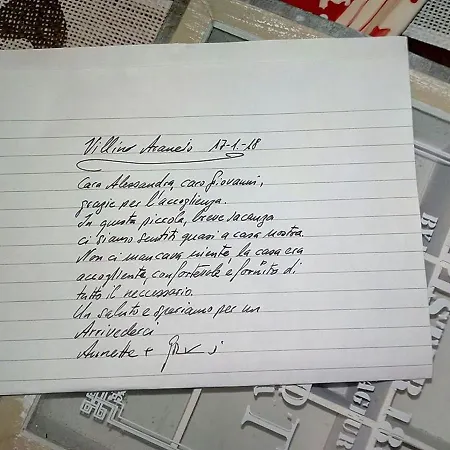 Villino Arancio 17-1-18
Cara Alessandra, caro Giovanni,
grazie per l'accoglienza.
In questa piccola, breve vacanza
ci siamo sentiti quasi a casa nostra.
Non ci mancava niente, la casa era
accogliente, confortevole e fornito di
tutto il neccessario.
Un saluto e speriamo per un
Arrivederci
Annette +
BY